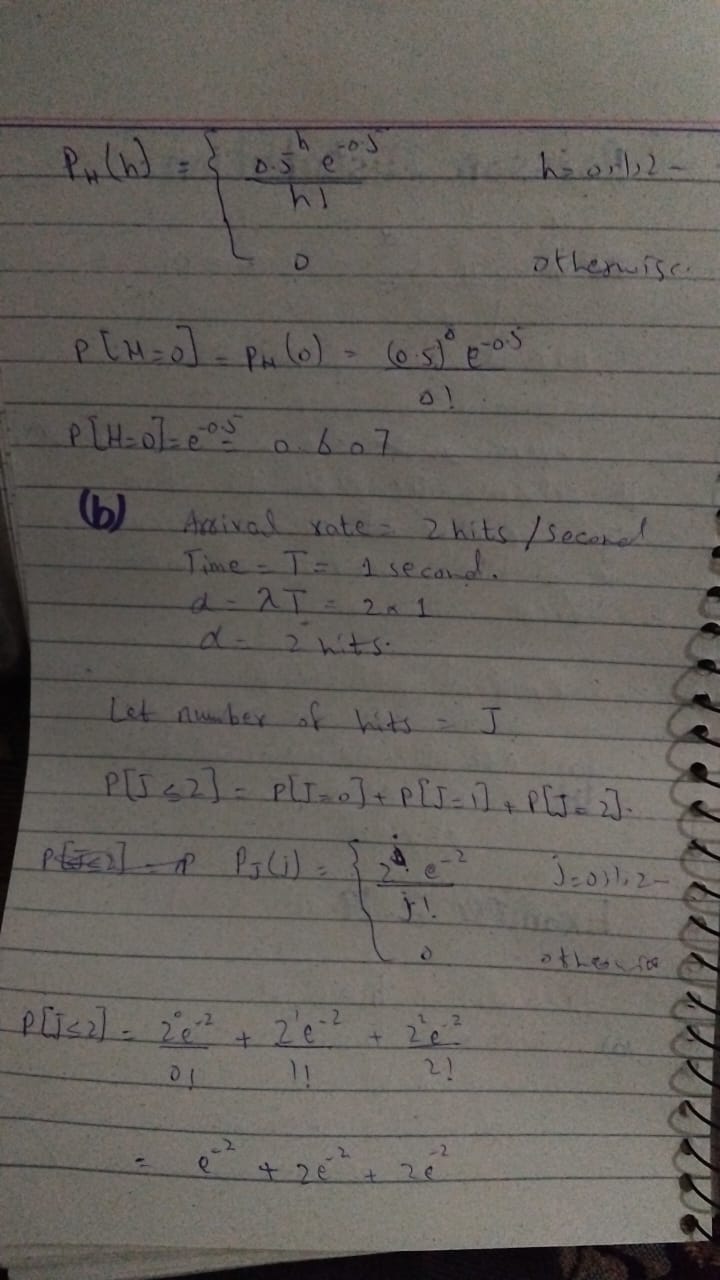 P_H(h) = { 0.5^h e^-0.5 / h!    h = 0,1,2 -
0    otherwise.
P[H=0] = P_H(0) = (0.5)^0 e^-0.5 / 0!
P[H=0] = e^-0.5 = 0.607
(b) Arrival rate = 2 hits / second
Time = T = 1 second.
α = λT = 2 × 1
α = 2 hits.
Let number of hits = J
P[J ≤ 2] = P[J=0] + P[J=1] + P[J=2].
P_J(j) = { 2^j e^-2 / j!    j = 0,1,2 -
0    otherwise
P[J≤2] = 2^0 e^-2 / 0! + 2^1 e^-2 / 1! + 2^2 e^-2 / 2!
= e^-2 + 2e^-2 + 2e^-2